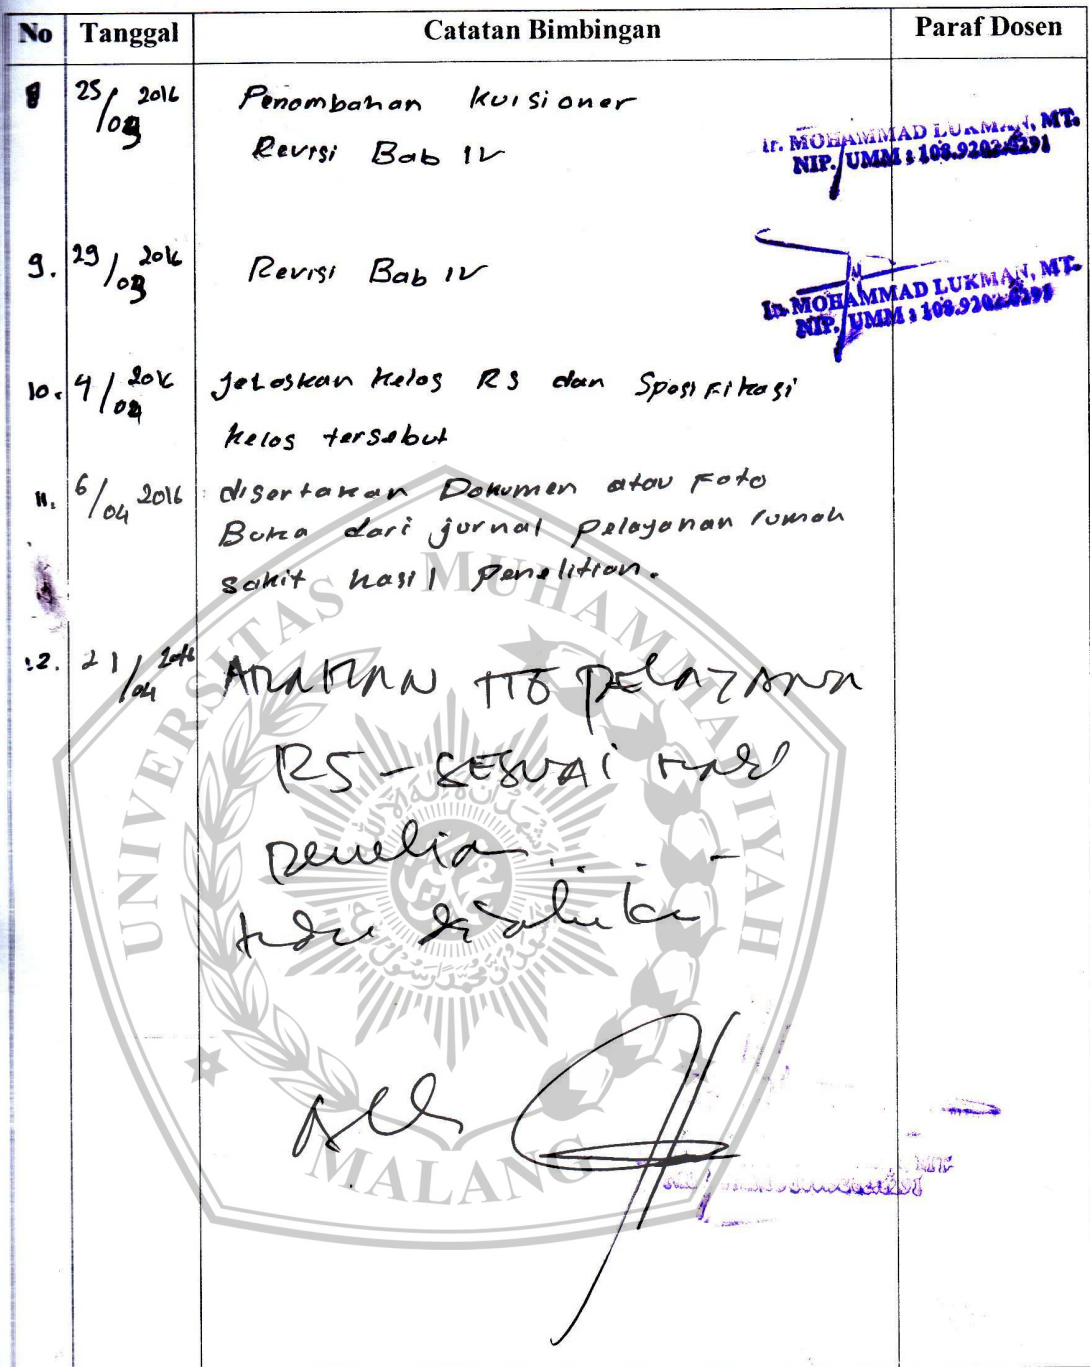 No Tanggal Catatan Bimbingan Paraf Dosen
8 25/03 2016 Penambahan kuisioner
Revisi Bab IV
Ir. MOHAMMAD LUKMAN, MT.
NIP. UMM : 108.9202.0291
9. 29/03 2016 Revisi Bab IV
Ir. MOHAMMAD LUKMAN, MT.
NIP. UMM : 108.9202.0291
10. 4/04 2016 jelaskan kelas RS dan Spesifikasi
kelas tersebut
11. 6/04 2016 disertakan Dokumen atau Foto
Buka dari jurnal pelayanan rumah
sakit hasil penelitian.
12. 21/04 2016 PELAYANAN
RS - SESUAI
UNIVERSITAS MUHAMMADIYAH
MALANG